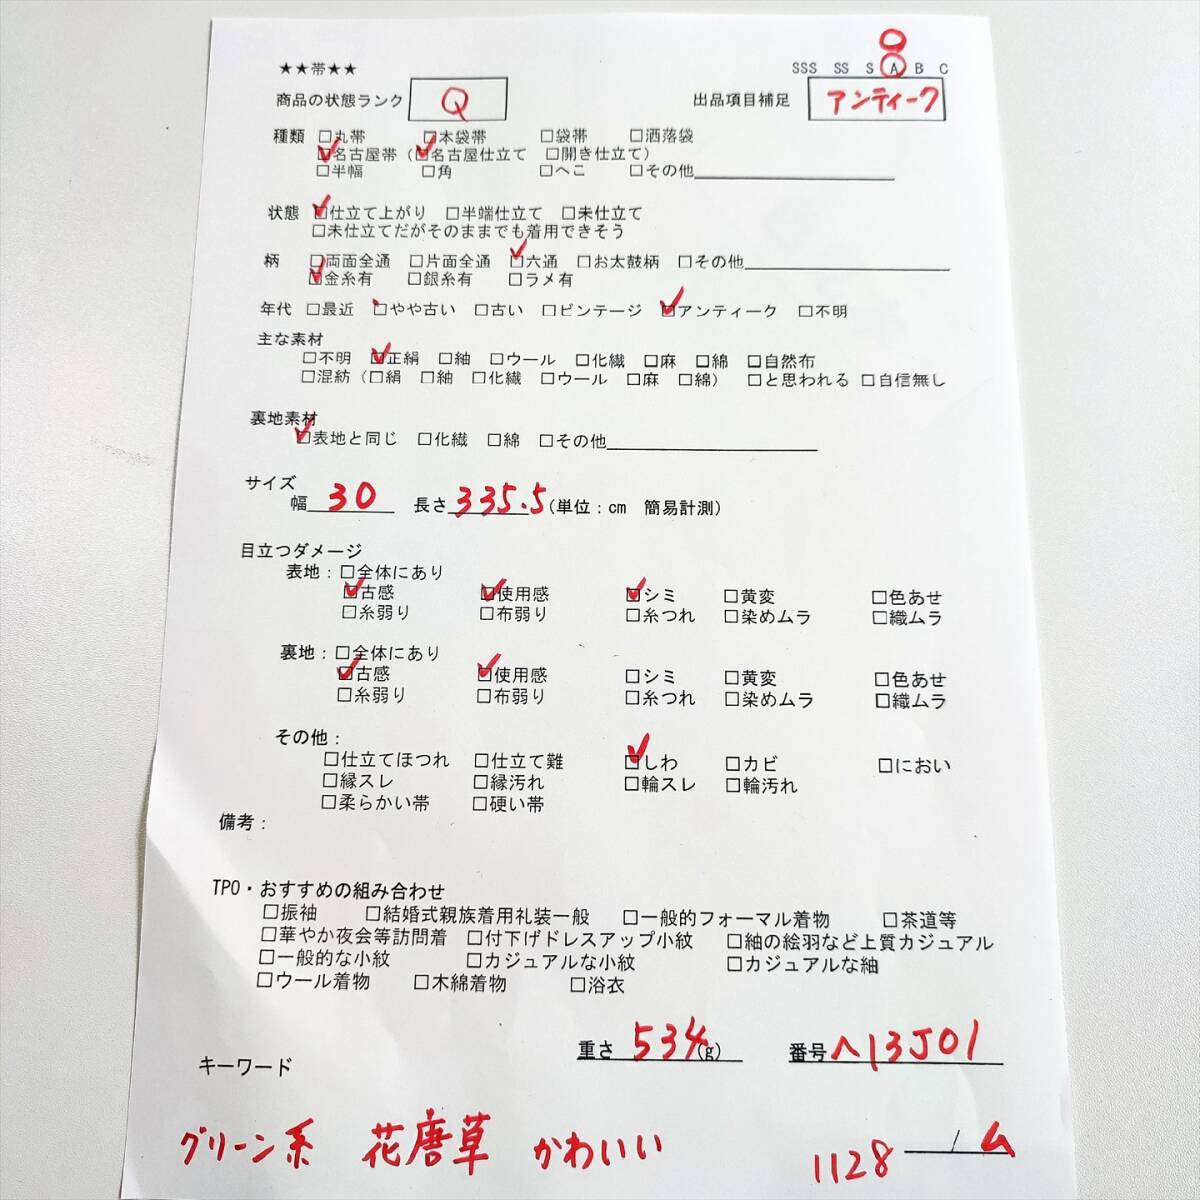 ★★帯★★
SSS SS S A B C
商品の状態ランク Q 出品項目補足 アンティーク
種類 □丸帯 □本袋帯 □袋帯 □洒落袋
□名古屋帯(□名古屋仕立て □開き仕立て)
□半幅 □角 □へこ □その他
状態 □仕立て上がり □半端仕立て □未仕立て
□未仕立てだがそのままでも着用できそう
柄 □両面全通 □片面全通 □六通 □お太鼓柄 □その他
□金糸有 □銀糸有 □ラメ有
年代 □最近 □やや古い □古い □ビンテージ □アンティーク □不明
主な素材
□不明 □正絹 □紬 □ウール □化繊 □麻 □綿 □自然布
□混紡(□絹 □紬 □化繊 □ウール □麻 □綿) □と思われる □自信無し
裏地素材
□表地と同じ □化繊 □綿 □その他
サイズ
幅 30 長さ 335.5 (単位:cm 簡易計測)
目立つダメージ
表地:□全体にあり
□古感 □使用感 □シミ □黄変 □色あせ
□糸弱り □布弱り □糸つれ □染めムラ □織ムラ
裏地:□全体にあり
□古感 □使用感 □シミ □黄変 □色あせ
□糸弱り □布弱り □糸つれ □染めムラ □織ムラ
その他:
□仕立てほつれ □仕立て難 □しわ □カビ □におい
□縁スレ □縁汚れ □輪スレ □輪汚れ
□柔らかい帯 □硬い帯
備考:
TPO・おすすめの組み合わせ
□振袖 □結婚式親族着用礼装一般 □一般的フォーマル着物 □茶道等
□華やか夜会等訪問着 □付下げドレスアップ小紋 □紬の絵羽など上質カジュアル
□一般的な小紋 □カジュアルな小紋 □カジュアルな紬
□ウール着物 □木綿着物 □浴衣
重さ 534(g) 番号 へ13J01
キーワード
グリーン系 花唐草 かわいい
1128 / ム